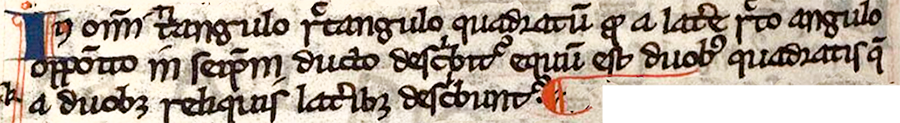 In omni triangulo rectangulo quadratum quod a latere recto angulo
opposito in seipsum ducto describitur equum est duobus quadratis que
a duobus reliquis lateribus describuntur